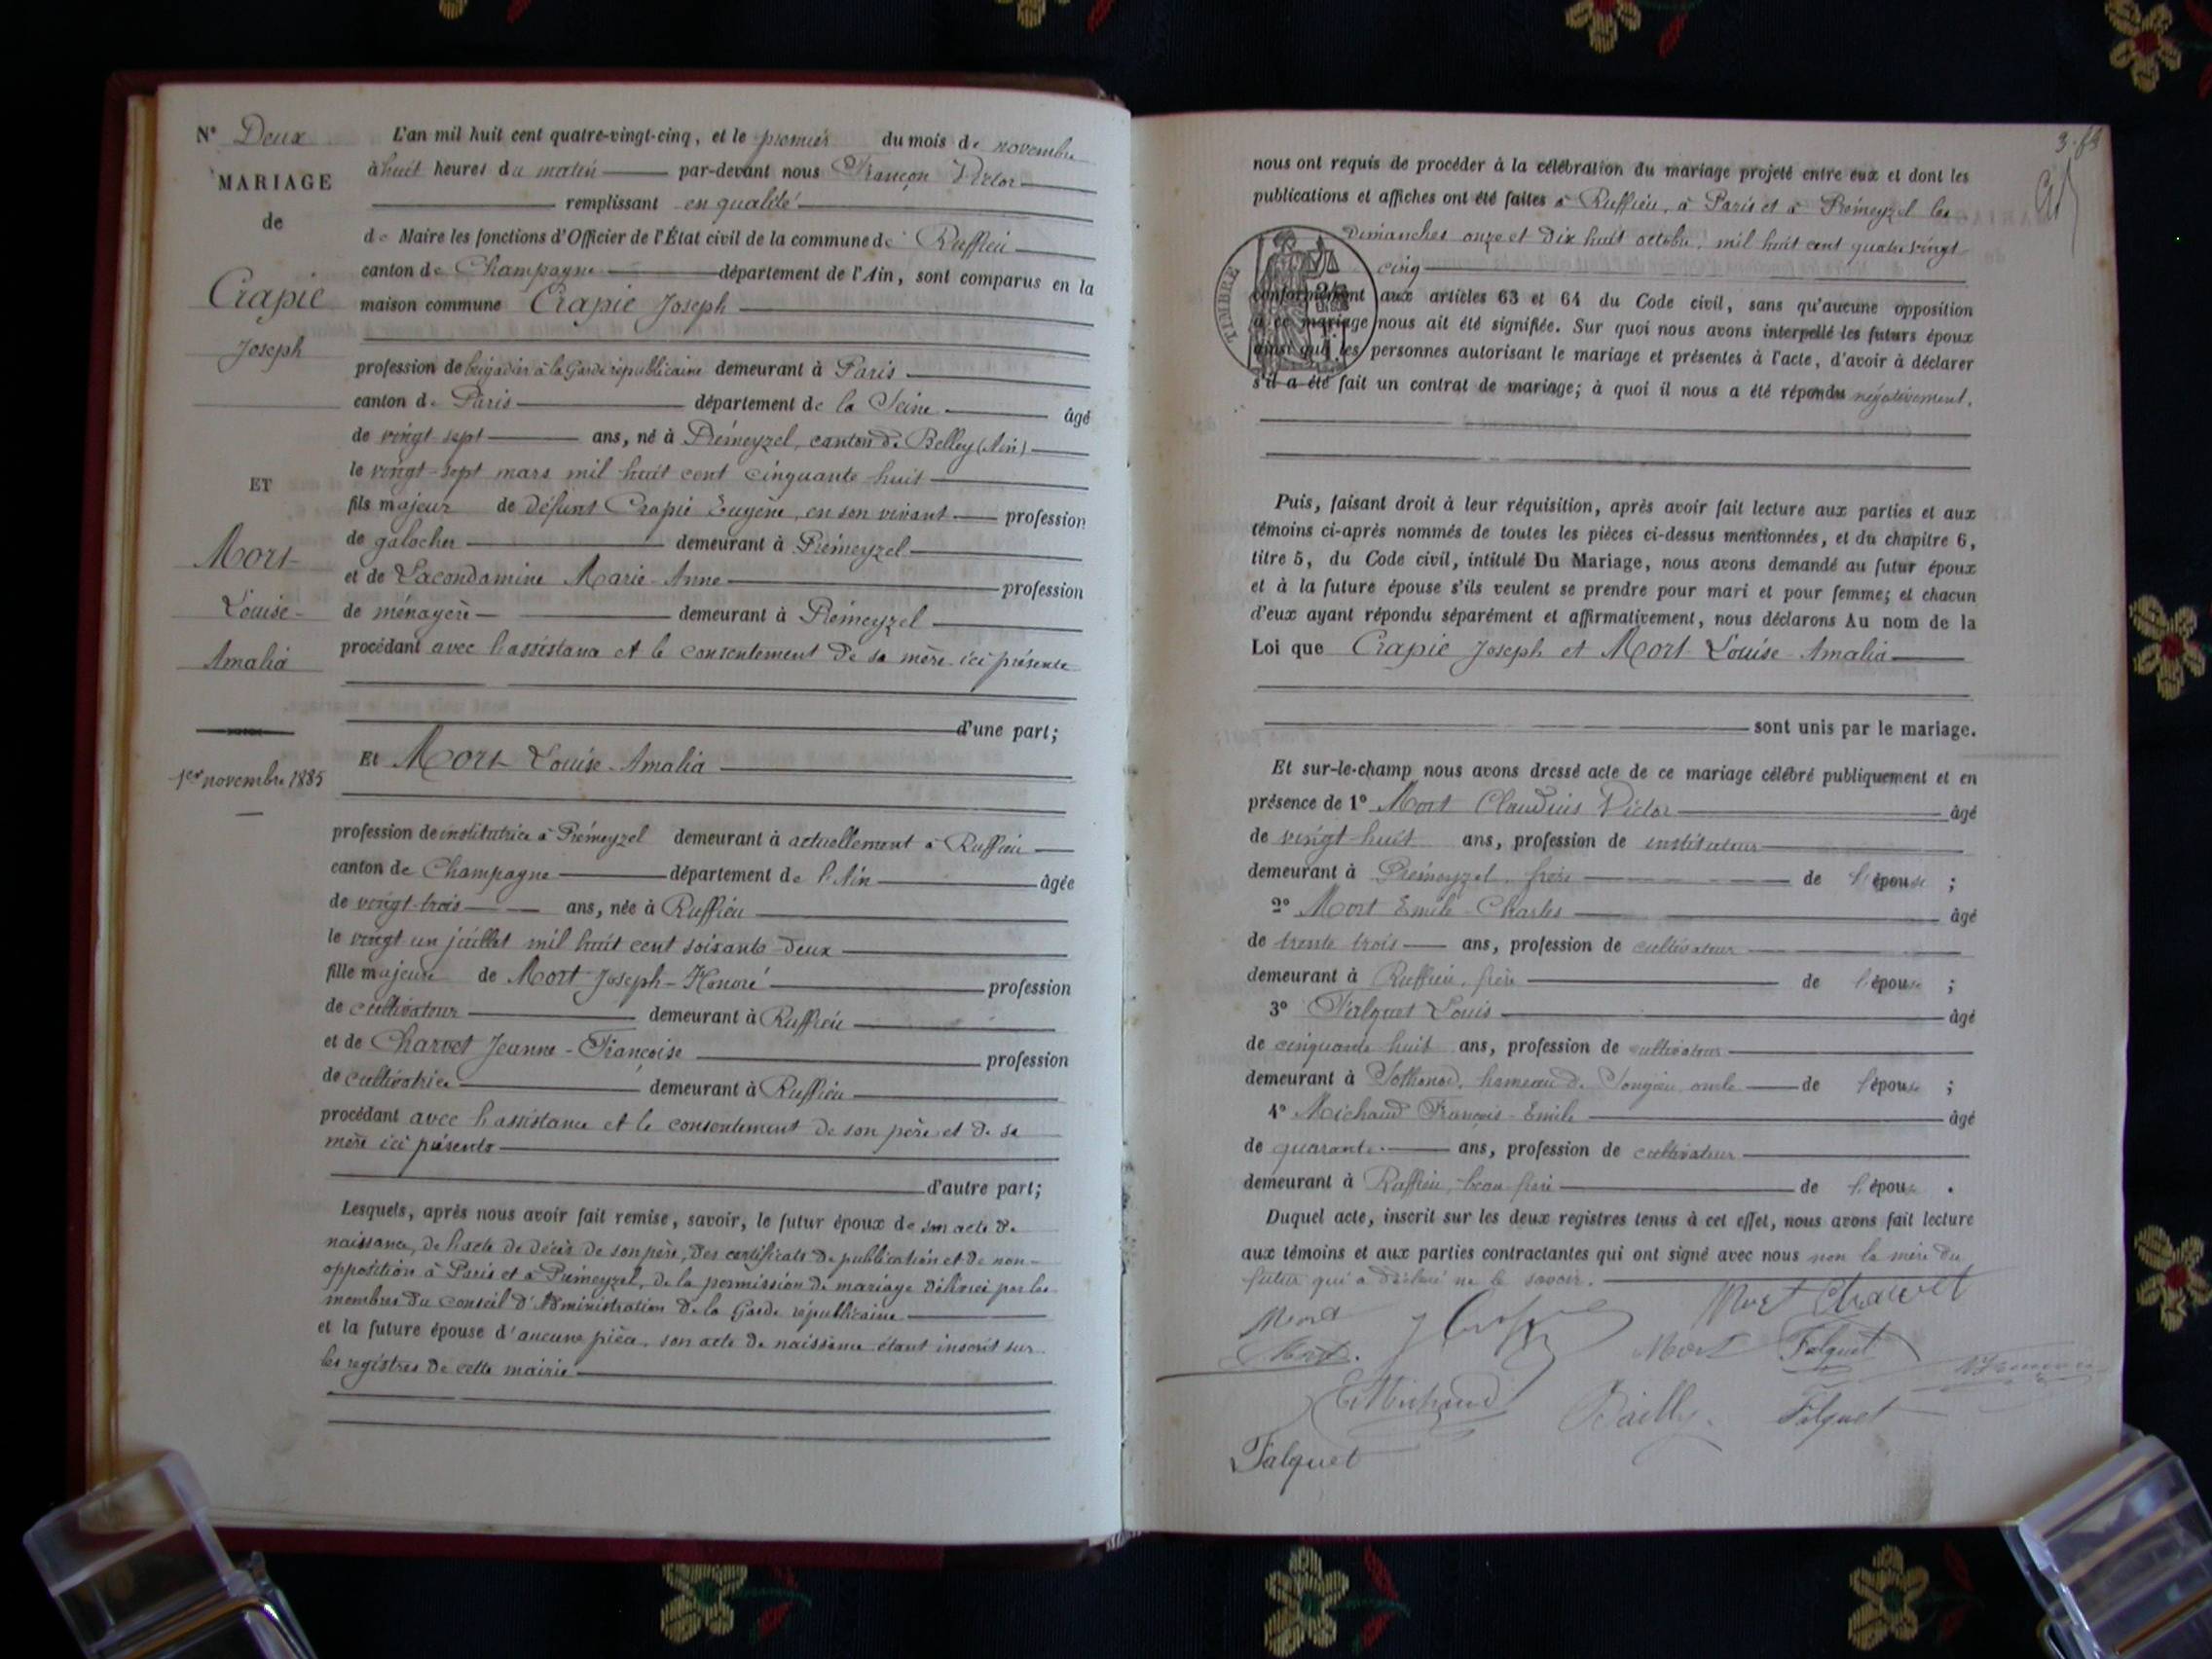 N° Deux
MARIAGE
de
Crapie
Joseph
ET
Mort
Louise-
Amalia
1er novembre 1885
L'an mil huit cent quatre-vingt-cinq, et le premier du mois de novembre
à huit heures du matin par-devant nous Françon Victor
remplissant en qualité
de Maire les fonctions d'Officier de l'État civil de la commune de Ruffieu
canton de Champagne département de l'Ain, sont comparus en la
maison commune Crapie Joseph
profession de brigadier à la Garde républicaine demeurant à Paris
canton de Paris département de la Seine âgé
de vingt sept ans, né à Prémeyzel, canton de Belley (Ain)
le vingt-sept mars mil huit cent cinquante huit
fils majeur de défunt Crapie Eugène, en son vivant profession
de galocher demeurant à Prémeyzel
et de Lacondamine Marie-Anne profession
de ménagère demeurant à Prémeyzel
procédant avec l'assistance et le consentement de sa mère ici présente
d'une part;
Et Mort Louise-Amalia
profession de institutrice à Prémeyzel demeurant à actuellement à Ruffieu
canton de Champagne département de l'Ain âgée
de vingt-trois ans, née à Ruffieu
le vingt un juillet mil huit cent soixante-deux
fille majeure de Mort Joseph-Honoré profession
de cultivateur demeurant à Ruffieu
et de Charvet Jeanne-Françoise profession
de cultivatrice demeurant à Ruffieu
procédant avec l'assistance et le consentement de son père et de sa
mère ici présents
d'autre part;
Lesquels, après nous avoir fait remise, savoir, le futur époux de son acte de
naissance, de l'acte de décès de son père, des certificats de publication et de non-
opposition à Paris et à Prémeyzel, de la permission de mariage délivrée par les
membres du conseil d'Administration de la Garde républicaine
et la future épouse d'aucune pièce, son acte de naissance étant inscrit sur
les registres de cette mairie
nous ont requis de procéder à la célébration du mariage projeté entre eux et dont les
publications et affiches ont été faites à Ruffieu, à Paris et à Prémeyzel les
Dimanches onze et dix huit octobre, mil huit cent quatre vingt
cinq
TIMBRE
conformément aux articles 63 et 64 du Code civil, sans qu'aucune opposition
à ce mariage nous ait été signifiée. Sur quoi nous avons interpellé les futurs époux
ainsi que les personnes autorisant le mariage et présentes à l'acte, d'avoir à déclarer
s'il a été fait un contrat de mariage; à quoi il nous a été répondu négativement.
Puis, faisant droit à leur réquisition, après avoir fait lecture aux parties et aux
témoins ci-après nommés de toutes les pièces ci-dessus mentionnées, et du chapitre 6,
titre 5, du Code civil, intitulé Du Mariage, nous avons demandé au futur époux
et à la future épouse s'ils veulent se prendre pour mari et pour femme; et chacun
d'eux ayant répondu séparément et affirmativement, nous déclarons Au nom de la
Loi que Crapie Joseph et Mort Louise-Amalia
sont unis par le mariage.
Et sur-le-champ nous avons dressé acte de ce mariage célébré publiquement et en
présence de 1° Mort Claudius Victor âgé
de vingt-huit ans, profession de instituteur
demeurant à Prémeyzel, frère de l'épouse ;
2° Mort Emile-Charles âgé
de trente trois ans, profession de cultivateur
demeurant à Ruffieu, frère de l'épouse ;
3° Falquet Louis âgé
de cinquante huit ans, profession de cultivateur
demeurant à Sothonod, hameau de Songieu, oncle de l'épouse ;
4° Michaud François-Emile âgé
de quarante ans, profession de cultivateur
demeurant à Ruffieu, beau-frère de l'épouse .
Duquel acte, inscrit sur les deux registres tenus à cet effet, nous avons fait lecture
aux témoins et aux parties contractantes qui ont signé avec nous non la mère du
futur qui a déclaré ne le savoir.
Mort Mort Charvet
Mort. Mort Falquet
E. Michaud Bailly Falquet
Falquet